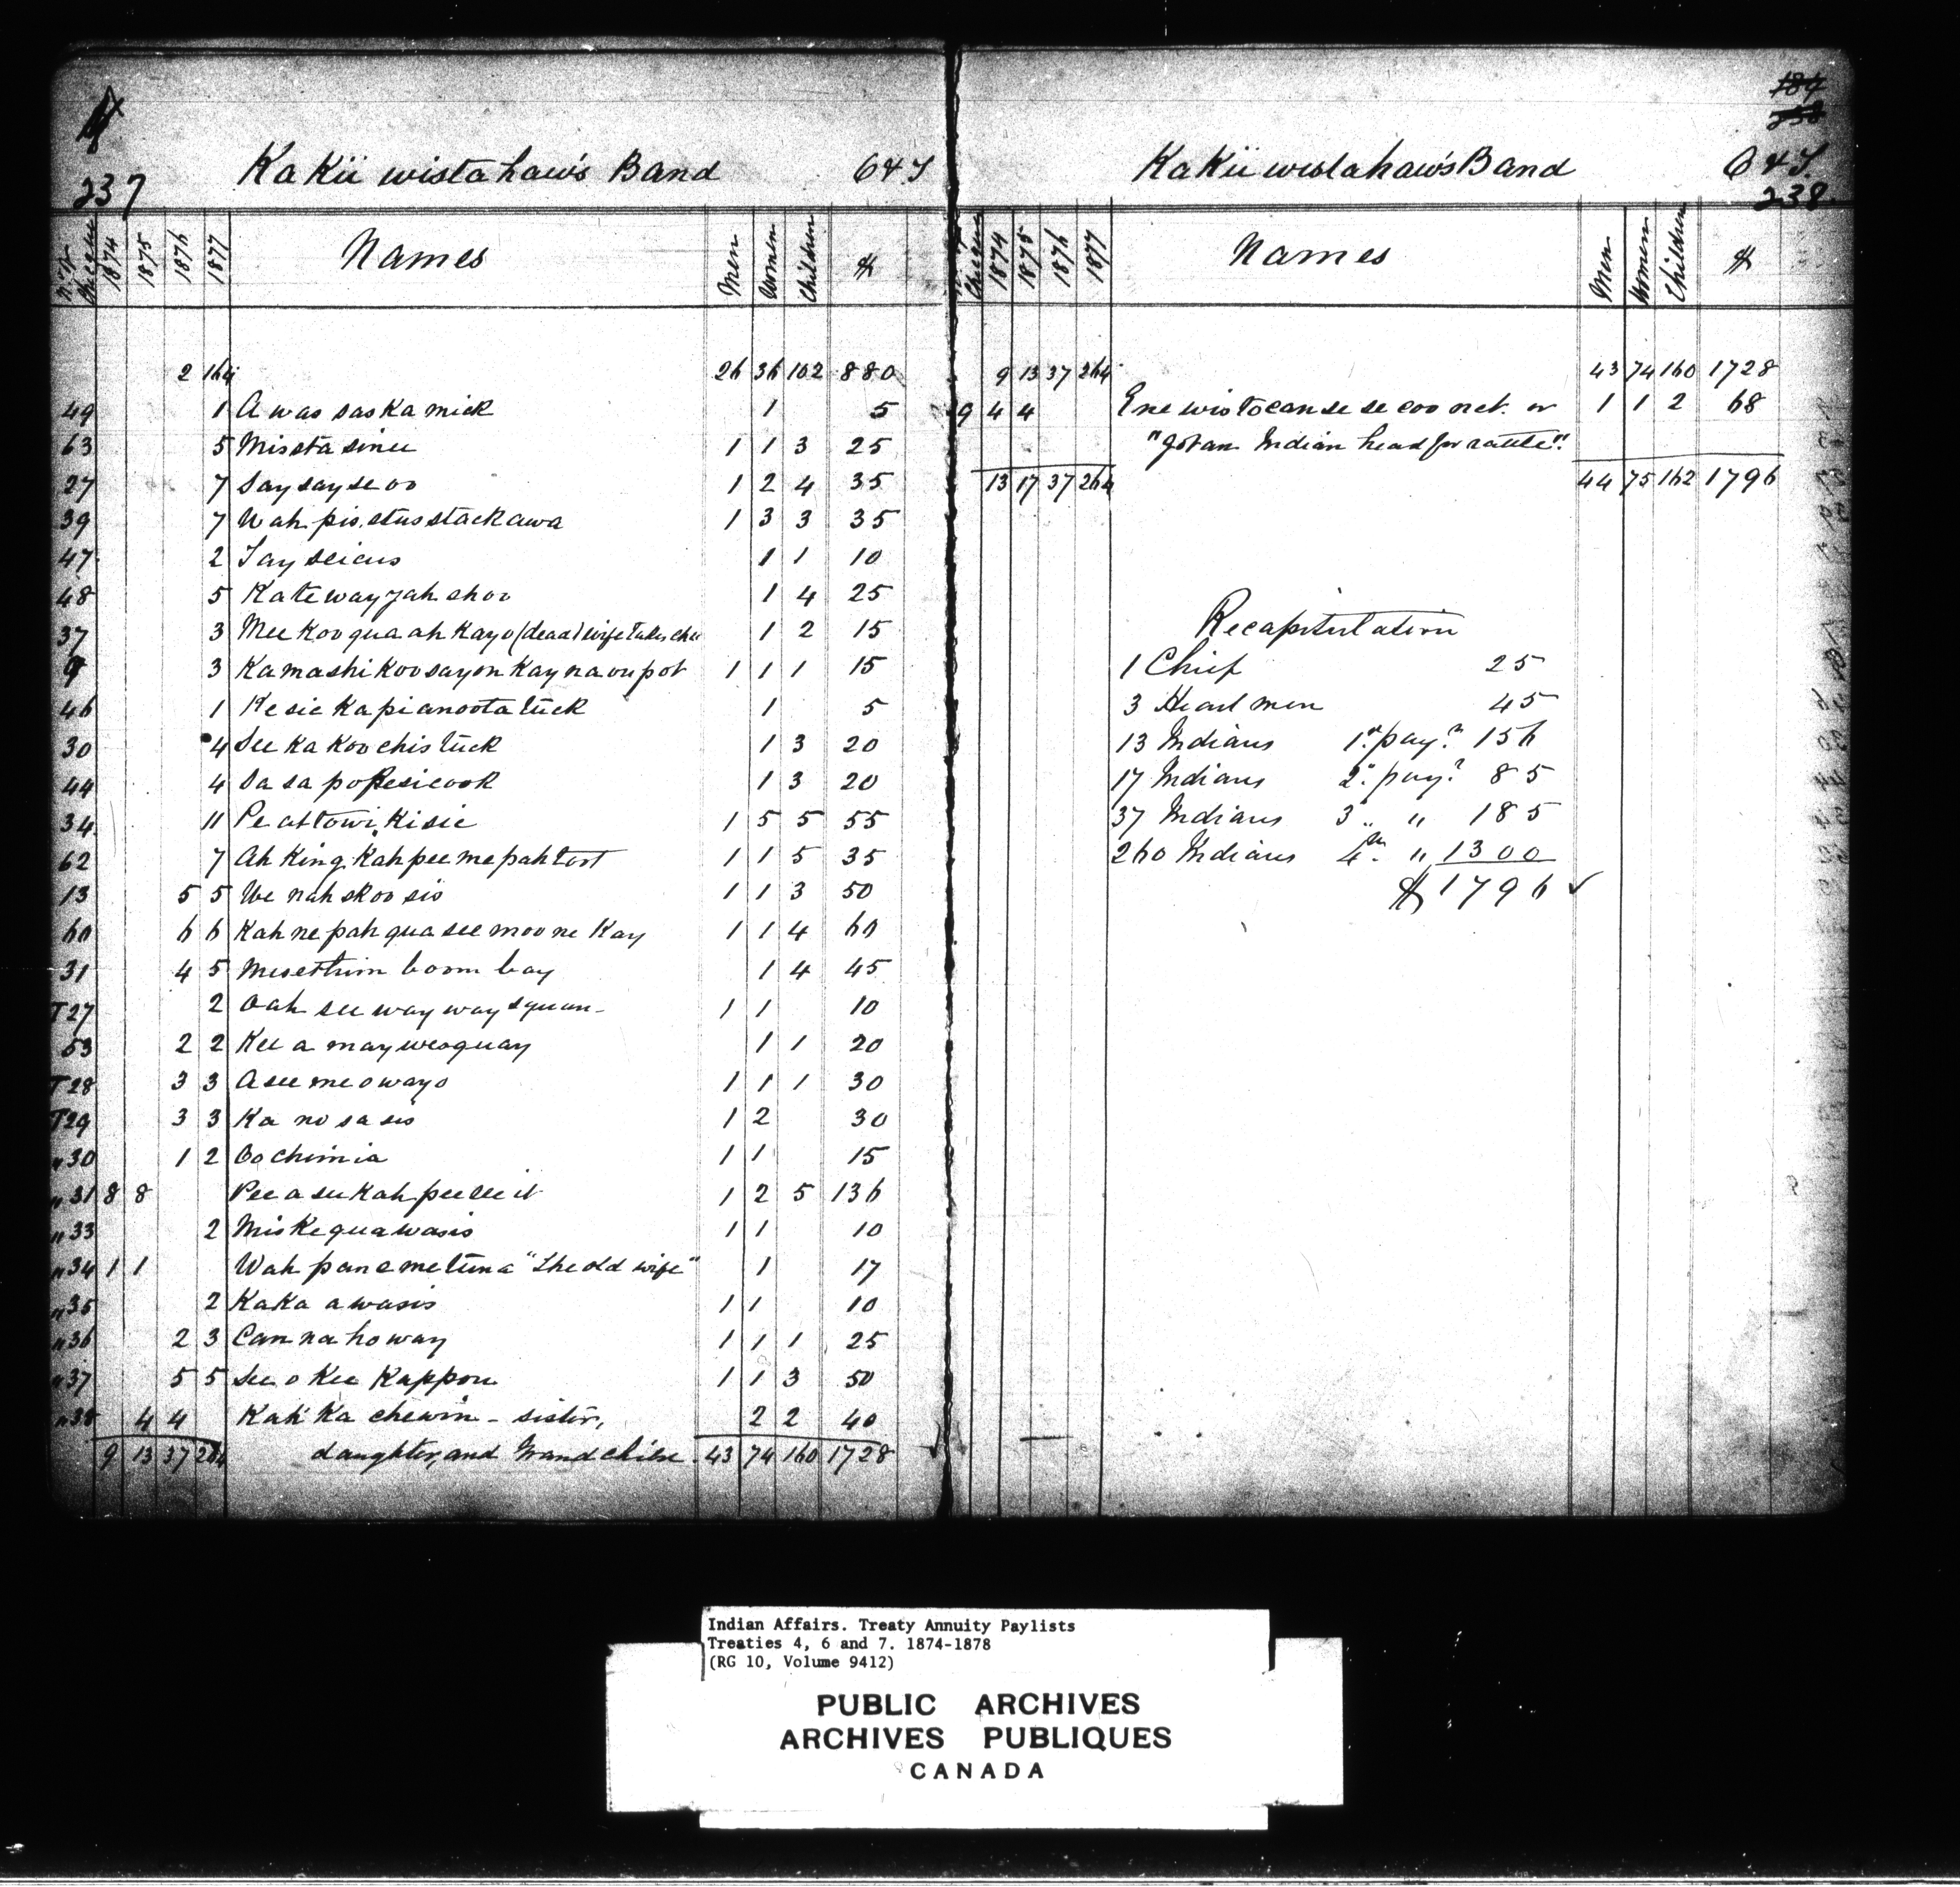 237 Ka Kii wistahaw's Band 64.I
No. of Cheque 1874 1875 1876 1877 Names Men Women Children $
2 164 26 36 102 880
49 1 A was sas Ka mick 1 5
63 5 Missta sinee 1 1 3 25
27 7 Say say se oo 1 2 4 35
39 7 Wah pis stus stack awa 1 3 3 35
47 2 Tay seicus 1 1 10
48 5 Kate way yah shoo 1 4 25
37 3 Mee Koo qua ah Kay o (dead) wife takes 1 2 15
9 3 Ka mashi Koo say on Kay na ou pot 1 1 1 15
46 1 Ke sic Ka pi anoota tuck 1 5
30 4 See Ka Koo chis tuck 1 3 20
44 4 Sa sa po Pesicook 1 3 20
34 11 Pe attowi Kisic 1 5 5 55
62 7 Ah King Kah pee me pah toot 1 1 5 35
13 5 5 We nah skoo sis 1 1 3 50
60 6 6 Kah ne pah qua see moo ne Kay 1 1 4 60
31 4 5 Misethim boom bay 1 4 45
T27 2 Oah see way way squan 1 1 10
53 2 2 Kee a may weaquay 1 1 20
T28 3 3 A see me o way o 1 1 1 30
T29 3 3 Ka no sa sis 1 2 30
"30 1 2 Oo chimia 1 1 15
"31 8 8 Pee a see Kah pee see it 1 2 5 136
"33 2 Mis Ke qua wasis 1 1 10
"34 1 1 Wah pan e me tuna "The old wife" 1 17
"35 2 Ka Ka awasis 1 1 10
"36 2 3 Can na ho way 1 1 1 25
"37 5 5 See o Kee Kappou 1 1 3 50
"38 4 4 Kah Ka chewin - sister, 2 2 40
9 13 37 264 daughter, and Grand 43 74 160 1728
184
238
Ka Kii wistahaw's Band 64.I.
238.
Cheque 1874 1875 1876 1877 Names Men Women Children $
9 13 37 264 43 74 160 1728
9 4 4 Ene wistocan se se coo net. or 1 1 2 68
"Got an Indian head for rattle".
13 17 37 264 44 75 162 1796
Recapitulation
1 Chief 25
3 Head men 45
13 Indians 1st pay.t 156
17 Indians 2d pay.t 85
37 Indians 3d " 185
260 Indians 4th " 1300
$1796 ✓
Indian Affairs. Treaty Annuity Paylists
Treaties 4, 6 and 7. 1874-1878
(RG 10, Volume 9412)
PUBLIC ARCHIVES
ARCHIVES PUBLIQUES
CANADA